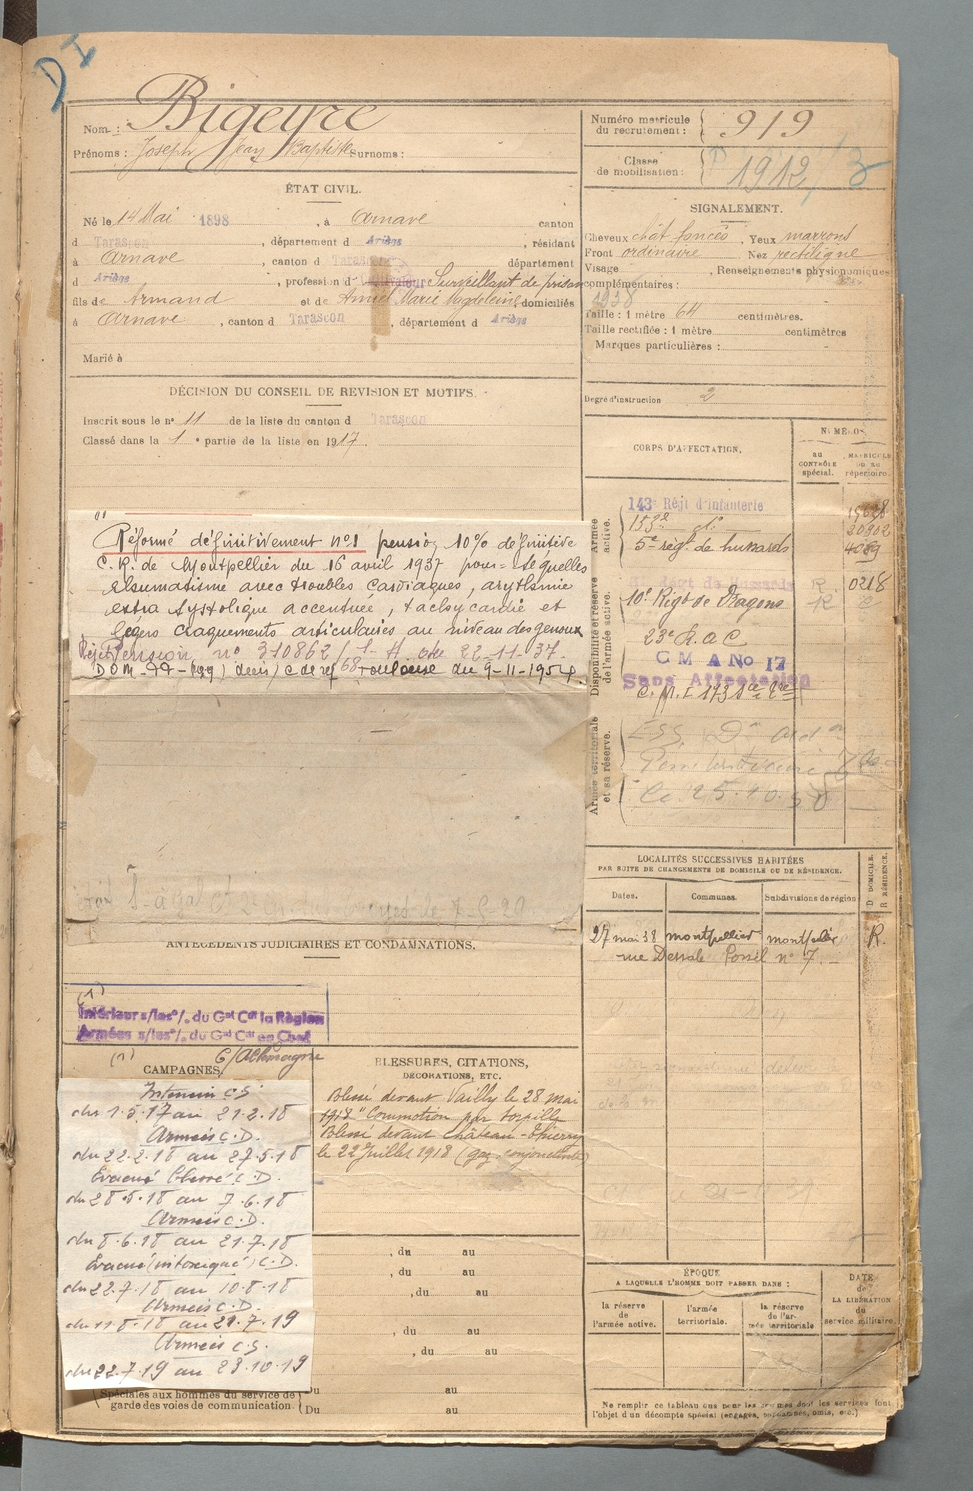 DI
Nom : Bigeyre
Prénoms : Joseph Jean Baptiste Surnoms :
Numéro matricule du recrutement : 919
Classe de mobilisation : 1912
ÉTAT CIVIL.
Né le 14 Mai 1898, à Arnave canton
d Tarascon, département d Ariège, résidant
à Arnave, canton d Tarascon département
d Ariège, profession d Surveillant de prison
fils de Armand et de Marie Magdeleine domiciliés
à Arnave, canton d Tarascon, département d Ariège
Marié à
SIGNALEMENT.
Cheveux chât foncés, Yeux marrons
Front ordinaire Nez rectiligne
Visage , Renseignements physionomiques
complémentaires :
1938
Taille : 1 mètre 64 centimètres.
Taille rectifiée : 1 mètre centimètres
Marques particulières :
Degré d'instruction 2
DÉCISION DU CONSEIL DE REVISION ET MOTIFS.
Inscrit sous le n° 11 de la liste du canton d Tarascon
Classé dans la 1e partie de la liste en 1917.
Réformé définitivement n°1 pension 10% définitive
C.R. de Montpellier du 16 avril 1937 pour séquelles
rhumatisme avec troubles cardiaques, arythmie
extra systolique accentuée, tachycardie et
légers craquements articulaires au niveau des genoux
Rejet Pension n° 310862 du 22-11-37.
Toulouse du 9-11-1954.
CORPS D'AFFECTATION.
NUMÉROS
AU CONTRÔLE spécial.
MATRICULE OU AU répertoire.
Armée active.
143e Régt d'infanterie
153e do 20902
5e régt de hussards 4089
Disponibilité et réserve de l'armée active.
Régt de Hussards R 0218
10e Régt de Dragons R
23e
C M A No 17
Sans Affectation
Armée territoriale et sa réserve.
Le 25.10.50
LOCALITÉS SUCCESSIVES HABITÉES
PAR SUITE DE CHANGEMENTS DE DOMICILE OU DE RÉSIDENCE.
Dates. Communes. Subdivisions de région D DOMICILE. R RÉSIDENCE.
27 mai 38 montpellier montpellier R.
rue n° 7.
ANTÉCÉDENTS JUDICIAIRES ET CONDAMNATIONS.
(1)
Intérieur s/les o/. du Gal Cdt la Région
Armées s/les o/. du Gal Cdt en Chef
(1) C/Allemagne
CAMPAGNES
Intérieur C.S.
du 1.5.17 au 21.2.18
Armées C.D.
du 22.2.18 au 27.5.18
Evacué blessé C.D.
du 28.5.18 au 7.6.18
Armées C.D.
du 8.6.18 au 21.7.18
Evacué (intoxiqué) C.D.
du 22.7.18 au 10.8.18
Armées C.D.
du 11.8.18 au 21.7.19
Armées C.S.
du 22.7.19 au 23.10.19
Spéciales aux hommes du service de
garde des voies de communication.
BLESSURES, CITATIONS,
DÉCORATIONS, ETC.
Blessé devant Vailly le 28 mai
1918 "Commotion par torpille
Blessé devant Château-Thierry
le 22 Juillet 1918 (gaz, conjonctivite)
, du au
, du au
, du au
, du au
, du au
Du au
Du au
ÉPOQUE
A LAQUELLE L'HOMME DOIT PASSER DANS :
la réserve de l'armée active.
l'armée territoriale.
la réserve de l'armée territoriale
DATE de LA LIBÉRATION du service militaire.
Ne remplir ce tableau que pour les hommes dont les services font
l'objet d'un décompte spécial (engagés, omis, etc.)